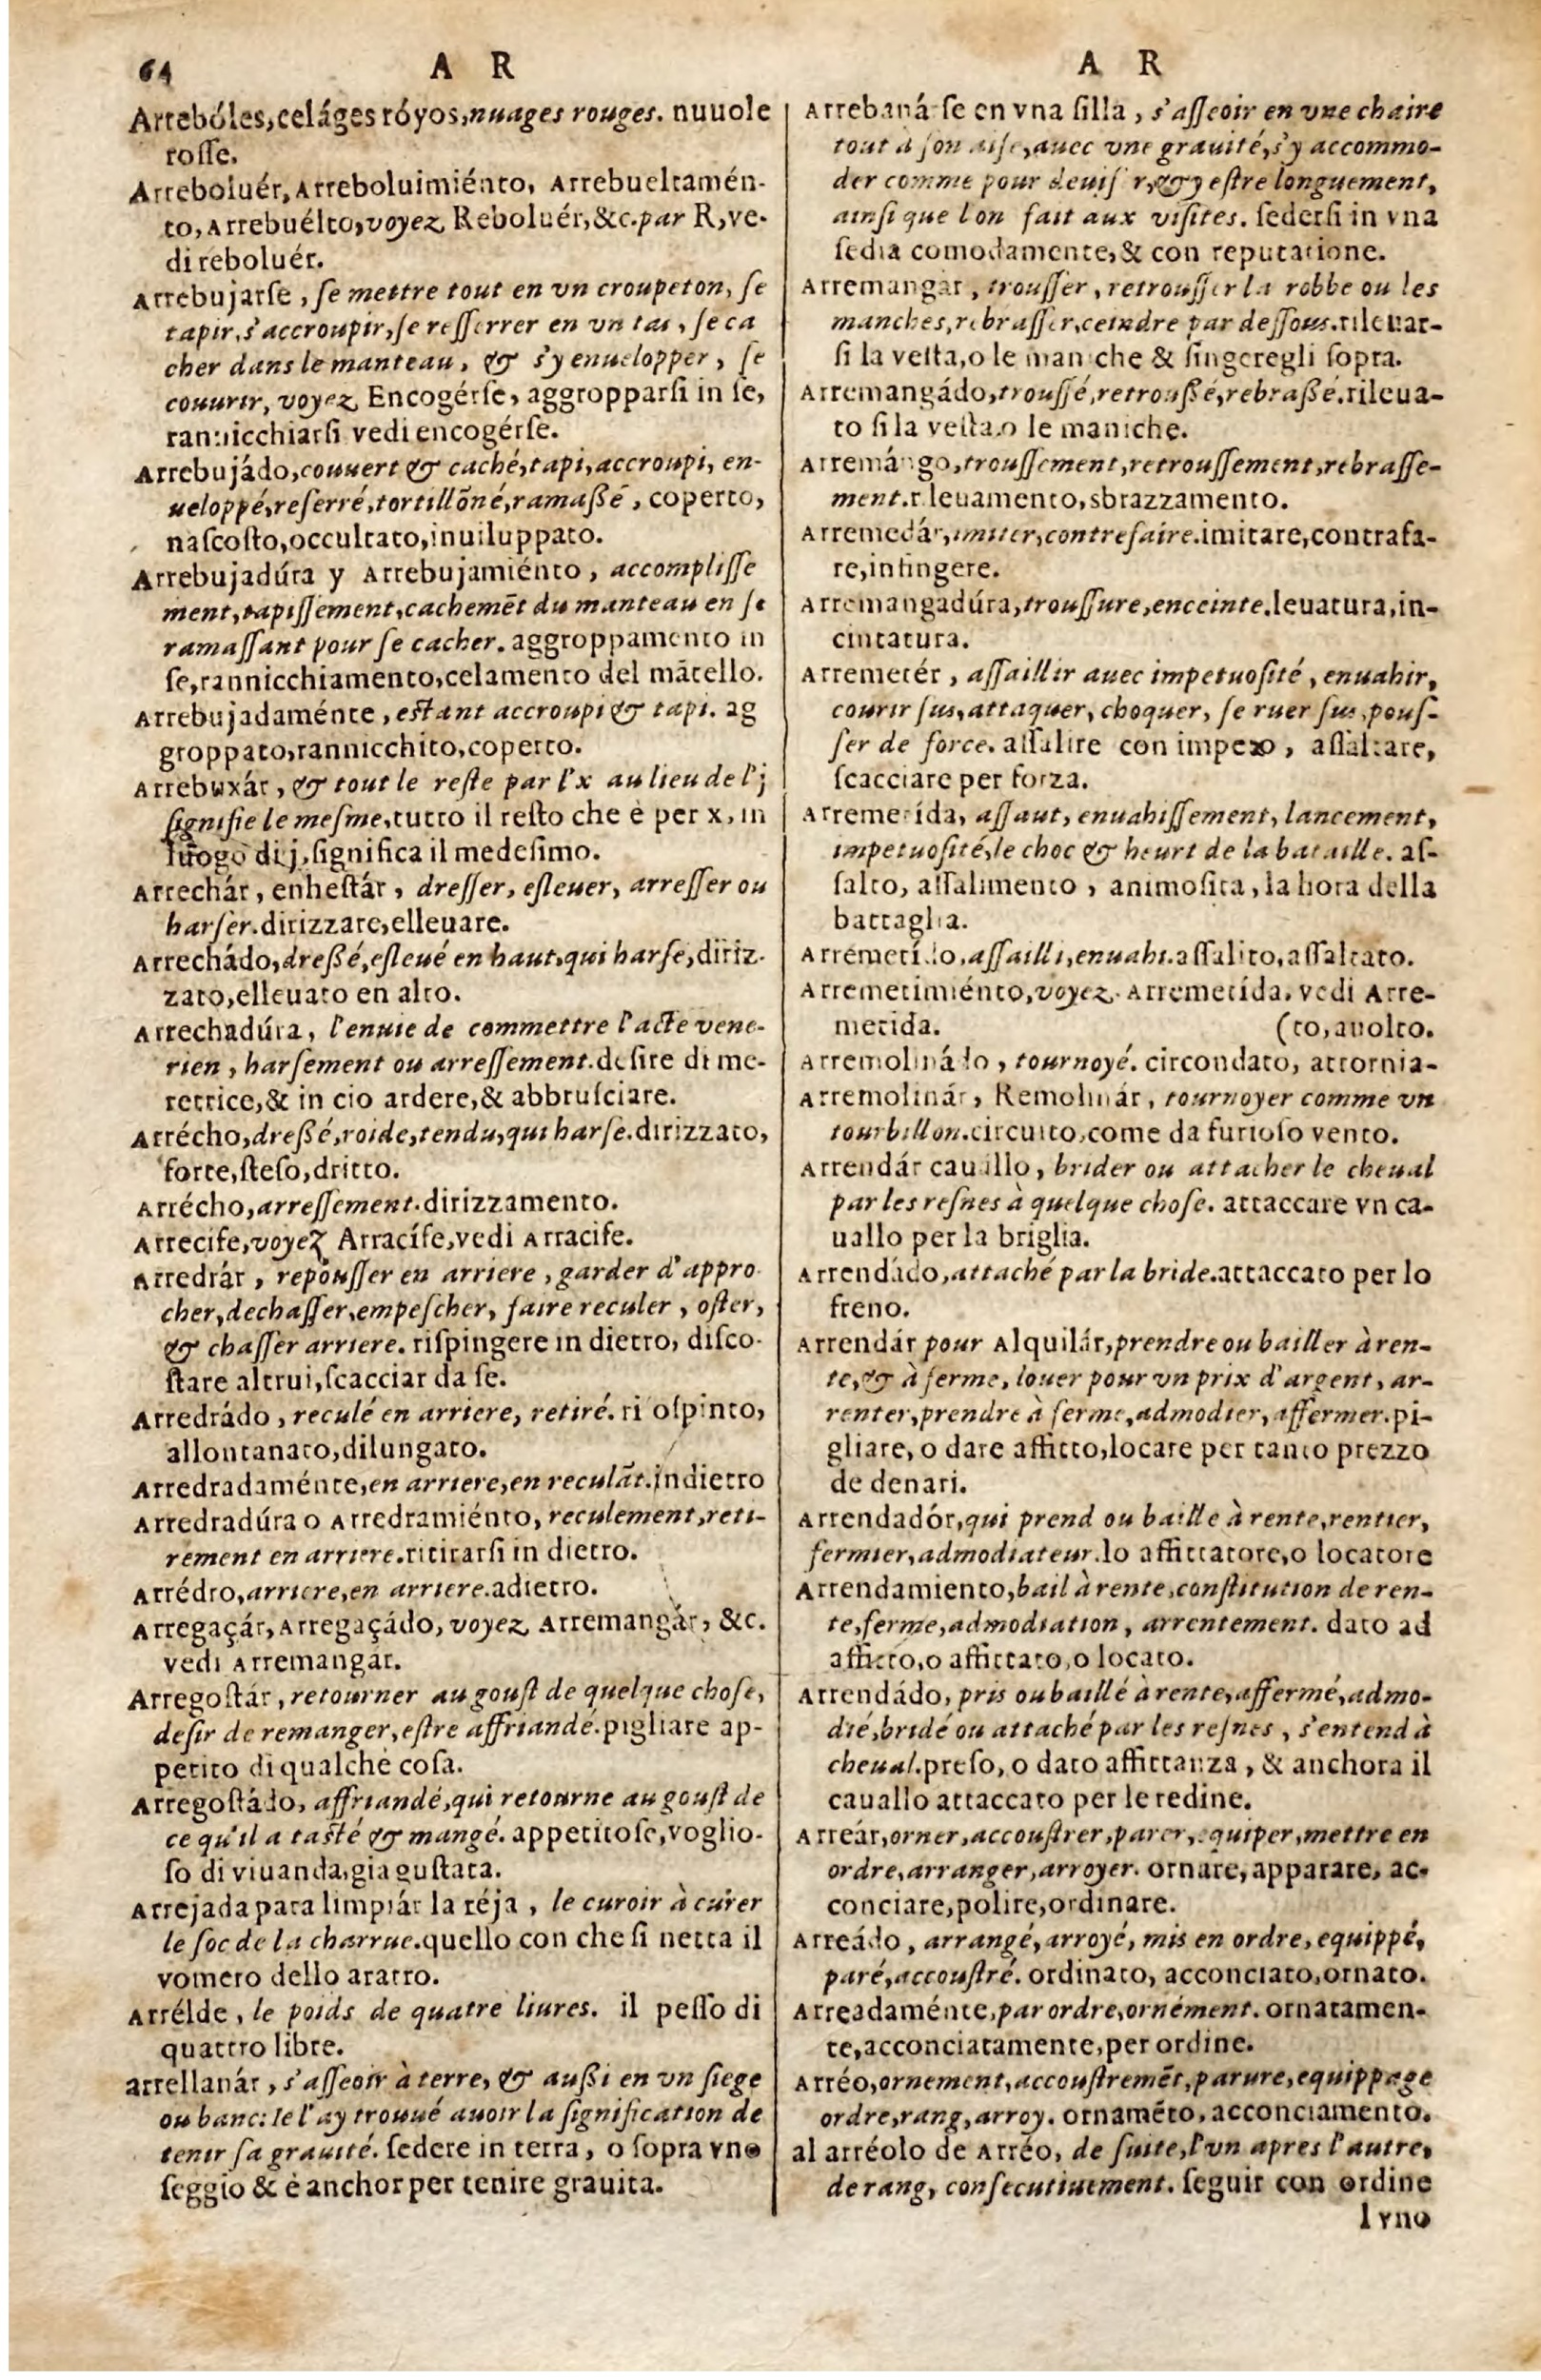 64 A R A R
Arrebóles, celáges róyos, nuages rouges. nuuole
rosse.
Arreboluér, Arreboluimiénto, Arrebueltamén-
to, Arrebuélto, voyez Reboluér, &c. par R, ve-
di reboluér.
Arrebujarse, se mettre tout en vn croupeton, se
tapir, s'accroupir, se resserrer en vn tas, se ca
cher dans le manteau, & s'y enuelopper, se
couurir, voyez Encogérse, aggropparsi in se,
rannicchiarsi vedi encogérse.
Arrebujádo, couuert & caché, tapi, accroupi, en-
ueloppé, reserré, tortillõné, ramassé, coperto,
nascosto, occultato, inuiluppato.
Arrebujadúra y Arrebujamiénto, accomplisse
ment, tapissement, cachemẽt du manteau en se
ramassant pour se cacher. aggroppamento in
se, rannicchiamento, celamento del mãtello.
Arrebujadaménte, estant accroupi & tapi. ag
groppato, rannicchito, coperto.
Arrebuxár, & tout le reste par l'x au lieu de l'j
signifie le mesme, tutto il resto che è per x, in
luogo di j, significa il medesimo.
Arrechár, enhestár, dresser, esleuer, arresser ou
harser. dirizzare, elleuare.
Arrechádo, dressé, esleué en haut, qui harse, diriz-
zato, elleuato en alto.
Arrechadúra, l'enuie de commettre l'acte vene-
rien, harsement ou arressement. desire di me-
retrice, & in cio ardere, & abbrusciare.
Arrécho, dressé, roide, tendu, qui harse. dirizzato,
forte, steso, dritto.
Arrécho, arressement. dirizzamento.
Arrecife, voyez Arracífe, vedi Arracife.
Arredrár, repousser en arriere, garder d'appro
cher, dechasser, empescher, faire reculer, oster,
& chasser arriere. rispingere in dietro, disco-
stare altrui, scacciar da se.
Arredrádo, reculé en arriere, retiré. ri ospinto,
allontanato, dilungato.
Arredradaménte, en arriere, en reculãt. indietro
Arredradúra o Arredramiénto, reculement, reti-
rement en arriere. ritirarsi in dietro.
Arrédro, arriere, en arriere. adietro.
Arregaçár, Arregaçádo, voyez Arremangár, &c.
vedi Arremangar.
Arregostár, retourner au goust de quelque chose,
desir de remanger, estre affriandé. pigliare ap-
petito di qualche cosa.
Arregostádo, affriandé, qui retourne au goust de
ce qu'il a tasté & mangé. appetitoso, voglio-
so di viuanda, gia gustata.
Arrejada para limpiár la réja, le curoir à curer
le soc de la charrue. quello con che si netta il
vomero dello aratro.
Arrélde, le poids de quatre liures. il pesso di
quattro libre.
arrellanár, s'asseoir à terre, & aussi en vn siege
ou banc: Ie l'ay trouué auoir la signification de
tenir sa grauité. sedere in terra, o sopra vno
seggio & è anchor per tenire grauita.
Arrebaná se en vna silla, s'asseoir en vne chaire
tout à son aise, auec vne grauité, s'y accommo-
der comme pour deuis r, & y estre longuement,
ainsi que l'on fait aux visites. sedersi in vna
sedia comodamente, & con reputatione.
Arremangar, trousser, retrousser la robbe ou les
manches, rebrasser, ceindre par dessous. rileuar-
si la vesta, o le maniche & singeregli sopra.
Arremangádo, troussé, retroussé, rebrassé. rileua-
to si la vesta, o le maniche.
Arremángo, troussement, retroussement, rebrasse-
ment. rileuamento, sbrazzamento.
Arremedár, imiter, contrefaire. imitare, contrafa-
re, infingere.
Arremangadúra, troussure, enceinte. leuatura, in-
cintatura.
Arremetér, assaillir auec impetuosité, enuahir,
courir sus, attaquer, choquer, se ruer sus, pous-
ser de force. assalire con impeto, assaltare,
scacciare per forza.
Arremetída, assaut, enuahissement, lancement,
impetuosité, le choc & heurt de la bataille. as-
salto, assalimento, animosita, la hora della
battaglia.
Arremetído, assailli, enuahi. assalito, assaltato.
Arremetimiénto, voyez Arremetída. vedi Arre-
metida. (to, auolto.
Arremolinádo, tournoyé. circondato, attornia-
Arremolinár, Remolinár, tournoyer comme vn
tourbillon. circuito, come da furioso vento.
Arrendár cauallo, brider ou attacher le cheual
par les resnes à quelque chose. attaccare vn ca-
uallo per la briglia.
Arrendádo, attaché par la bride. attaccato per lo
freno.
Arrendár pour Alquilár, prendre ou bailler à ren-
te, & à ferme, louer pour vn prix d'argent, ar-
renter, prendre à ferme, admodier, affermer. pi-
gliare, o dare affitto, locare per tanto prezzo
de denari.
Arrendadór, qui prend ou baille à rente, rentier,
fermier, admodiateur. lo affittatore, o locatore
Arrendamiento, bail à rente, constitution de ren-
te, ferme, admodiation, arrentement. dato ad
affitto, o affittato, o locato.
Arrendádo, pris ou baillé à rente, affermé, admo-
dié, bridé ou attaché par les resnes, s'entend à
cheual. preso, o dato affittanza, & anchora il
cauallo attaccato per le redine.
Arreár, orner, accoustrer, parer, equiper, mettre en
ordre, arranger, arroyer. ornare, apparare, ac-
conciare, polire, ordinare.
Arreádo, arrangé, arroyé, mis en ordre, equippé,
paré, accoustré. ordinato, acconciato, ornato.
Arreadaménte, par ordre, ornément. ornatamen-
te, acconciatamente, per ordine.
Arréo, ornement, accoustremẽt, parure, equippage
ordre, rang, arroy. ornamẽto, acconciamento.
al arréolo de Arréo, de suite, l'vn apres l'autre,
de rang, consecutiuement. seguir con ordine
l vno